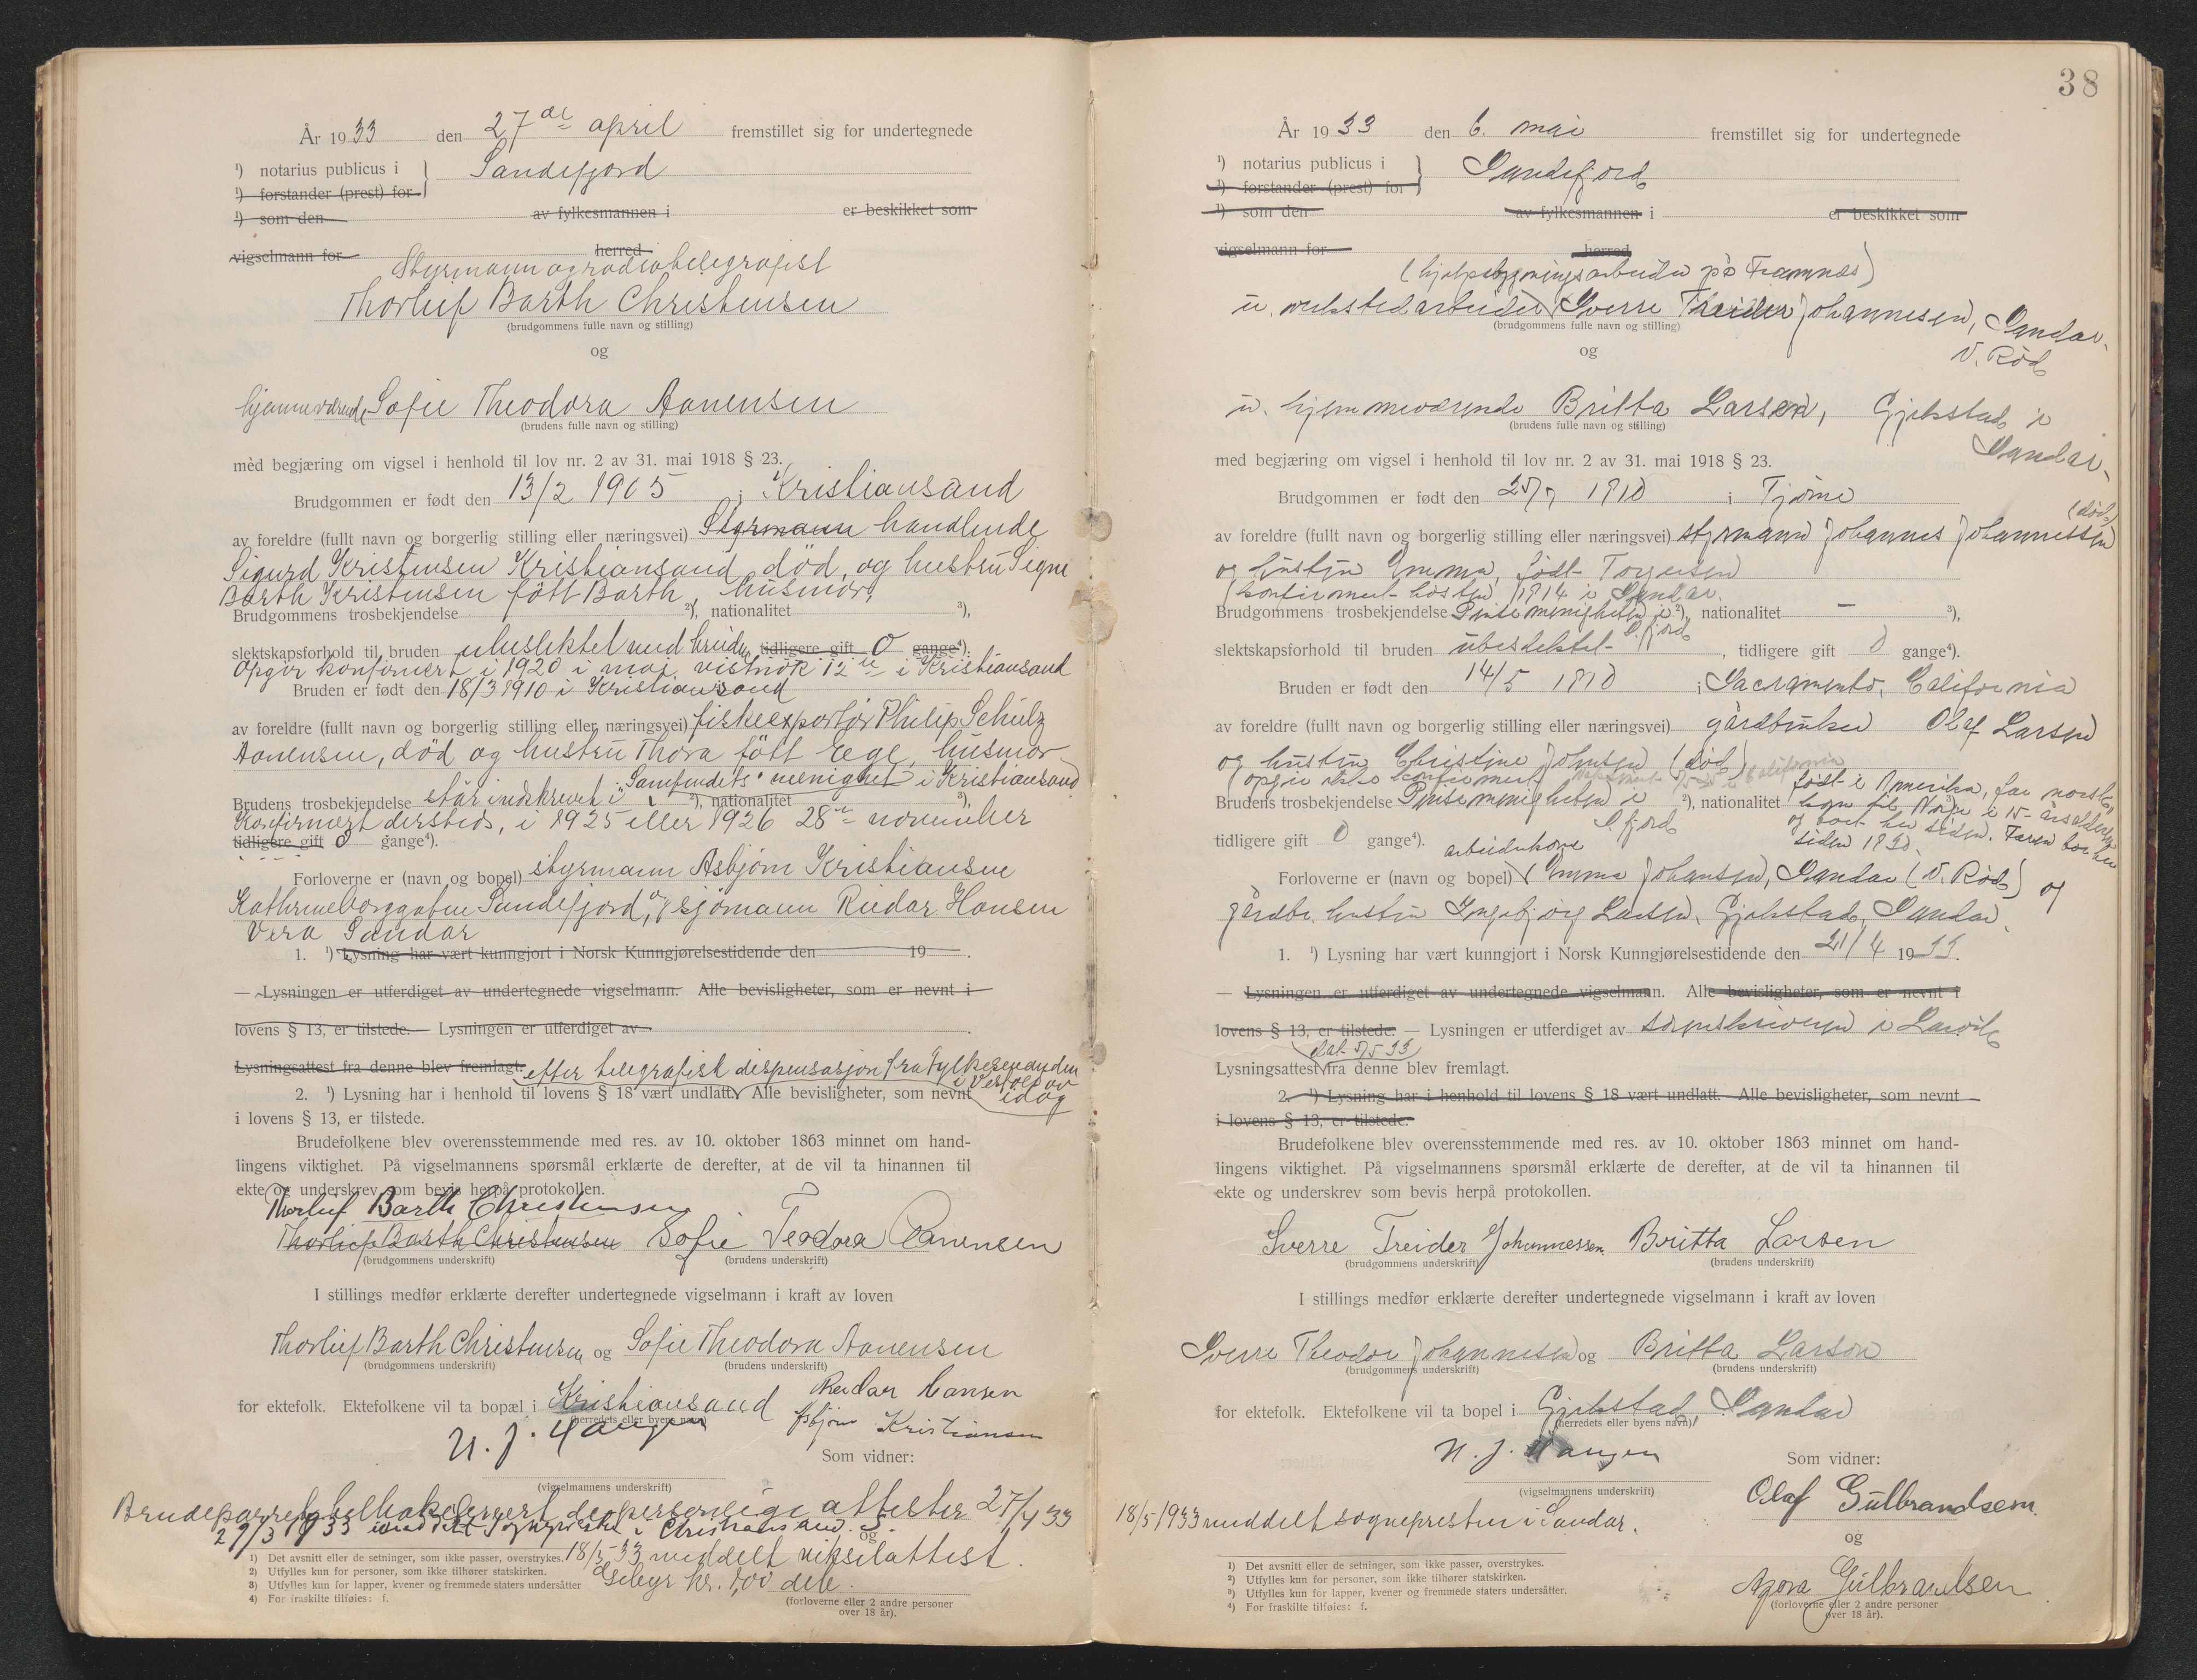 År 1933 den 27de april fremstillet sig for undertegnede
¹) notarius publicus i Sandefjord
¹) forstander (prest) for
¹) som den av fylkesmannen i er beskikket som
vigselmann for herred
Styrmann og radiotelegrafist
Thorleif Barth Christensen
(brudgommens fulle navn og stilling)
og
hjemmeværende Sofie Theodora Aanensen
(brudens fulle navn og stilling)
med begjæring om vigsel i henhold til lov nr. 2 av 31. mai 1918 § 23.
Brudgommen er født den 13/2 1905 i Kristiansand
av foreldre (fullt navn og borgerlig stilling eller næringsvei) Styrmann handlende
Sigurd Kristensen Kristiansand død, og hustru Signe
Barth Kristensen født Barth, husmor,
Brudgommens trosbekjendelse ²), nationalitet ³),
slektskapsforhold til bruden ubeslektet med bruden tidligere gift 0 gange⁴).
Opgir konfirmert i 1920 i mai vistnok 12te i Kristiansand
Bruden er født den 18/3 1910 i Kristiansand
av foreldre (fullt navn og borgerlig stilling eller næringsvei) fiskeexportør Philip Schulz
Aanensen, død og hustru Thora født Ege, husmor
Brudens trosbekjendelse står indskrevet i "Samfundets" menighet i Kristiansand ²), nationalitet ³),
Konfirmert dersteds, i 1925 eller 1926 28de november
tidligere gift 0 gange⁴).
Forloverne er (navn og bopel) styrmann Asbjørn Kristiansen
Kathrineborggaten Sandefjord, og sjømann Reidar Hansen
Vera Sandar
1. ¹) Lysning har vært kunngjort i Norsk Kunngjørelsestidende den 19 .
— Lysningen er utferdiget av undertegnede vigselmann. Alle bevisligheter, som er nevnt i
lovens § 13, er tilstede. — Lysningen er utferdiget av
Lysningsattest fra denne blev fremlagt. efter telegrafisk dispensasjon fra Fylkesmannen
i Vestfold av idag
2. ¹) Lysning har i henhold til lovens § 18 vært undlatt. Alle bevisligheter, som nevnt
i lovens § 13, er tilstede.
Brudefolkene blev overensstemmende med res. av 10. oktober 1863 minnet om hand-
lingens viktighet. På vigselmannens spørsmål erklærte de derefter, at de vil ta hinannen til
ekte og underskrev som bevis herpå protokollen.
Thorleif Barth Christensen
Thorleif Barth Christensen Sofie Teodora Aanensen
(brudgommens underskrift) (brudens underskrift)
I stillings medfør erklærte derefter undertegnede vigselmann i kraft av loven
Thorleif Barth Christensen og Sofie Theodora Aanensen
(brudgommens underskrift) (brudens underskrift)
for ektefolk. Ektefolkene vil ta bopæl i Kristiansand
(herredets eller byens navn)
Reidar Hansen
Asbjørn Kristiansen
N. J. Haugen
Som vidner:
(vigselmannens underskrift)
Brudeparret tilbakelevert de personlige attester 27/4 33
29/3 1933 meddelt sogneprest i Christiansand. S.
og
18/5 33 meddelt vigselattest.
Gebyr kr. 1,00 dele.
1) Det avsnitt eller de setninger, som ikke passer, overstrykes.
2) Utfylles kun for personer, som ikke tilhører statskirken.
3) Utfylles kun for lapper, kvener og fremmede staters undersåtter
4) For fraskilte tilføies: f.
(forloverne eller 2 andre personer
over 18 år).
38
År 1933 den 6. mai fremstillet sig for undertegnede
¹) notarius publicus i Sandefjord
¹) forstander (prest) for
¹) som den av fylkesmannen i er beskikket som
vigselmann for herred
(hjelpebygningsarbeider på Framnæs)
u. verkstedarbeider Sverre Theider Johannesen, Sandar,
(brudgommens fulle navn og stilling)
V. Rød
og
u. hjemmeværende Britta Larsen, Gjekstad i
(brudens fulle navn og stilling)
Sandar,
med begjæring om vigsel i henhold til lov nr. 2 av 31. mai 1918 § 23.
Brudgommen er født den 25/7 1910 i Tjøme
(død)
av foreldre (fullt navn og borgerlig stilling eller næringsvei) styrmann Johannes Johannessen
og hustru Emma, født Torgersen
(konfirmert høsten 1914 i Sandar.
Brudgommens trosbekjendelse Pinsemenigheten i S.fjord ²), nationalitet — ³),
slektskapsforhold til bruden ubeslektet , tidligere gift 0 gange⁴).
Bruden er født den 14/5 1910 i Sacramento, California
av foreldre (fullt navn og borgerlig stilling eller næringsvei) gårdbruker Olaf Larsen
og hustru Christine Johnsen (død)
opgir ikke konfirmert
Brudens trosbekjendelse Pinsemenigheten i S.fjord ²), nationalitet født i Amerika, far norsk,
kom til Norge i 15-årsalderen
og boet her siden. Faren boet her
siden 1920.
tidligere gift 0 gange⁴).
arbeiderkone
Forloverne er (navn og bopel) Emma Johansen, Sandar (V. Rød) og
gårdbr. hustru Ingebjørg Larsen, Gjekstad, Sandar.
1. ¹) Lysning har vært kunngjort i Norsk Kunngjørelsestidende den 21/4 1933.
— Lysningen er utferdiget av undertegnede vigselmann. Alle bevisligheter, som er nevnt i
lovens § 13, er tilstede. — Lysningen er utferdiget av sorenskriveren i Larvik
dat. 5/5 33
Lysningsattest fra denne blev fremlagt.
2. ¹) Lysning har i henhold til lovens § 18 vært undlatt. Alle bevisligheter, som nevnt
i lovens § 13, er tilstede.
Brudefolkene blev overensstemmende med res. av 10. oktober 1863 minnet om hand-
lingens viktighet. På vigselmannens spørsmål erklærte de derefter, at de vil ta hinannen til
ekte og underskrev som bevis herpå protokollen.
Sverre Treider Johannessen Britta Larsen
(brudgommens underskrift) (brudens underskrift)
I stillings medfør erklærte derefter undertegnede vigselmann i kraft av loven
Sverre Theodor Johannesen og Britta Larson
(brudgommens underskrift) (brudens underskrift)
for ektefolk. Ektefolkene vil ta bopel i Gjekstad, Sandar
(herredets eller byens navn)
N. J. Haugen
Som vidner:
(vigselmannens underskrift)
Olaf Gulbrandsen.
18/5 1933 meddelt sognepresten i Sandar.
og
Agora Gulbrandsen
(forloverne eller 2 andre personer
over 18 år).
1) Det avsnitt eller de setninger, som ikke passer, overstrykes.
2) Utfylles kun for personer, som ikke tilhører statskirken.
3) Utfylles kun for lapper, kvener og fremmede staters undersåtter.
4) For fraskilte tilføies: f.